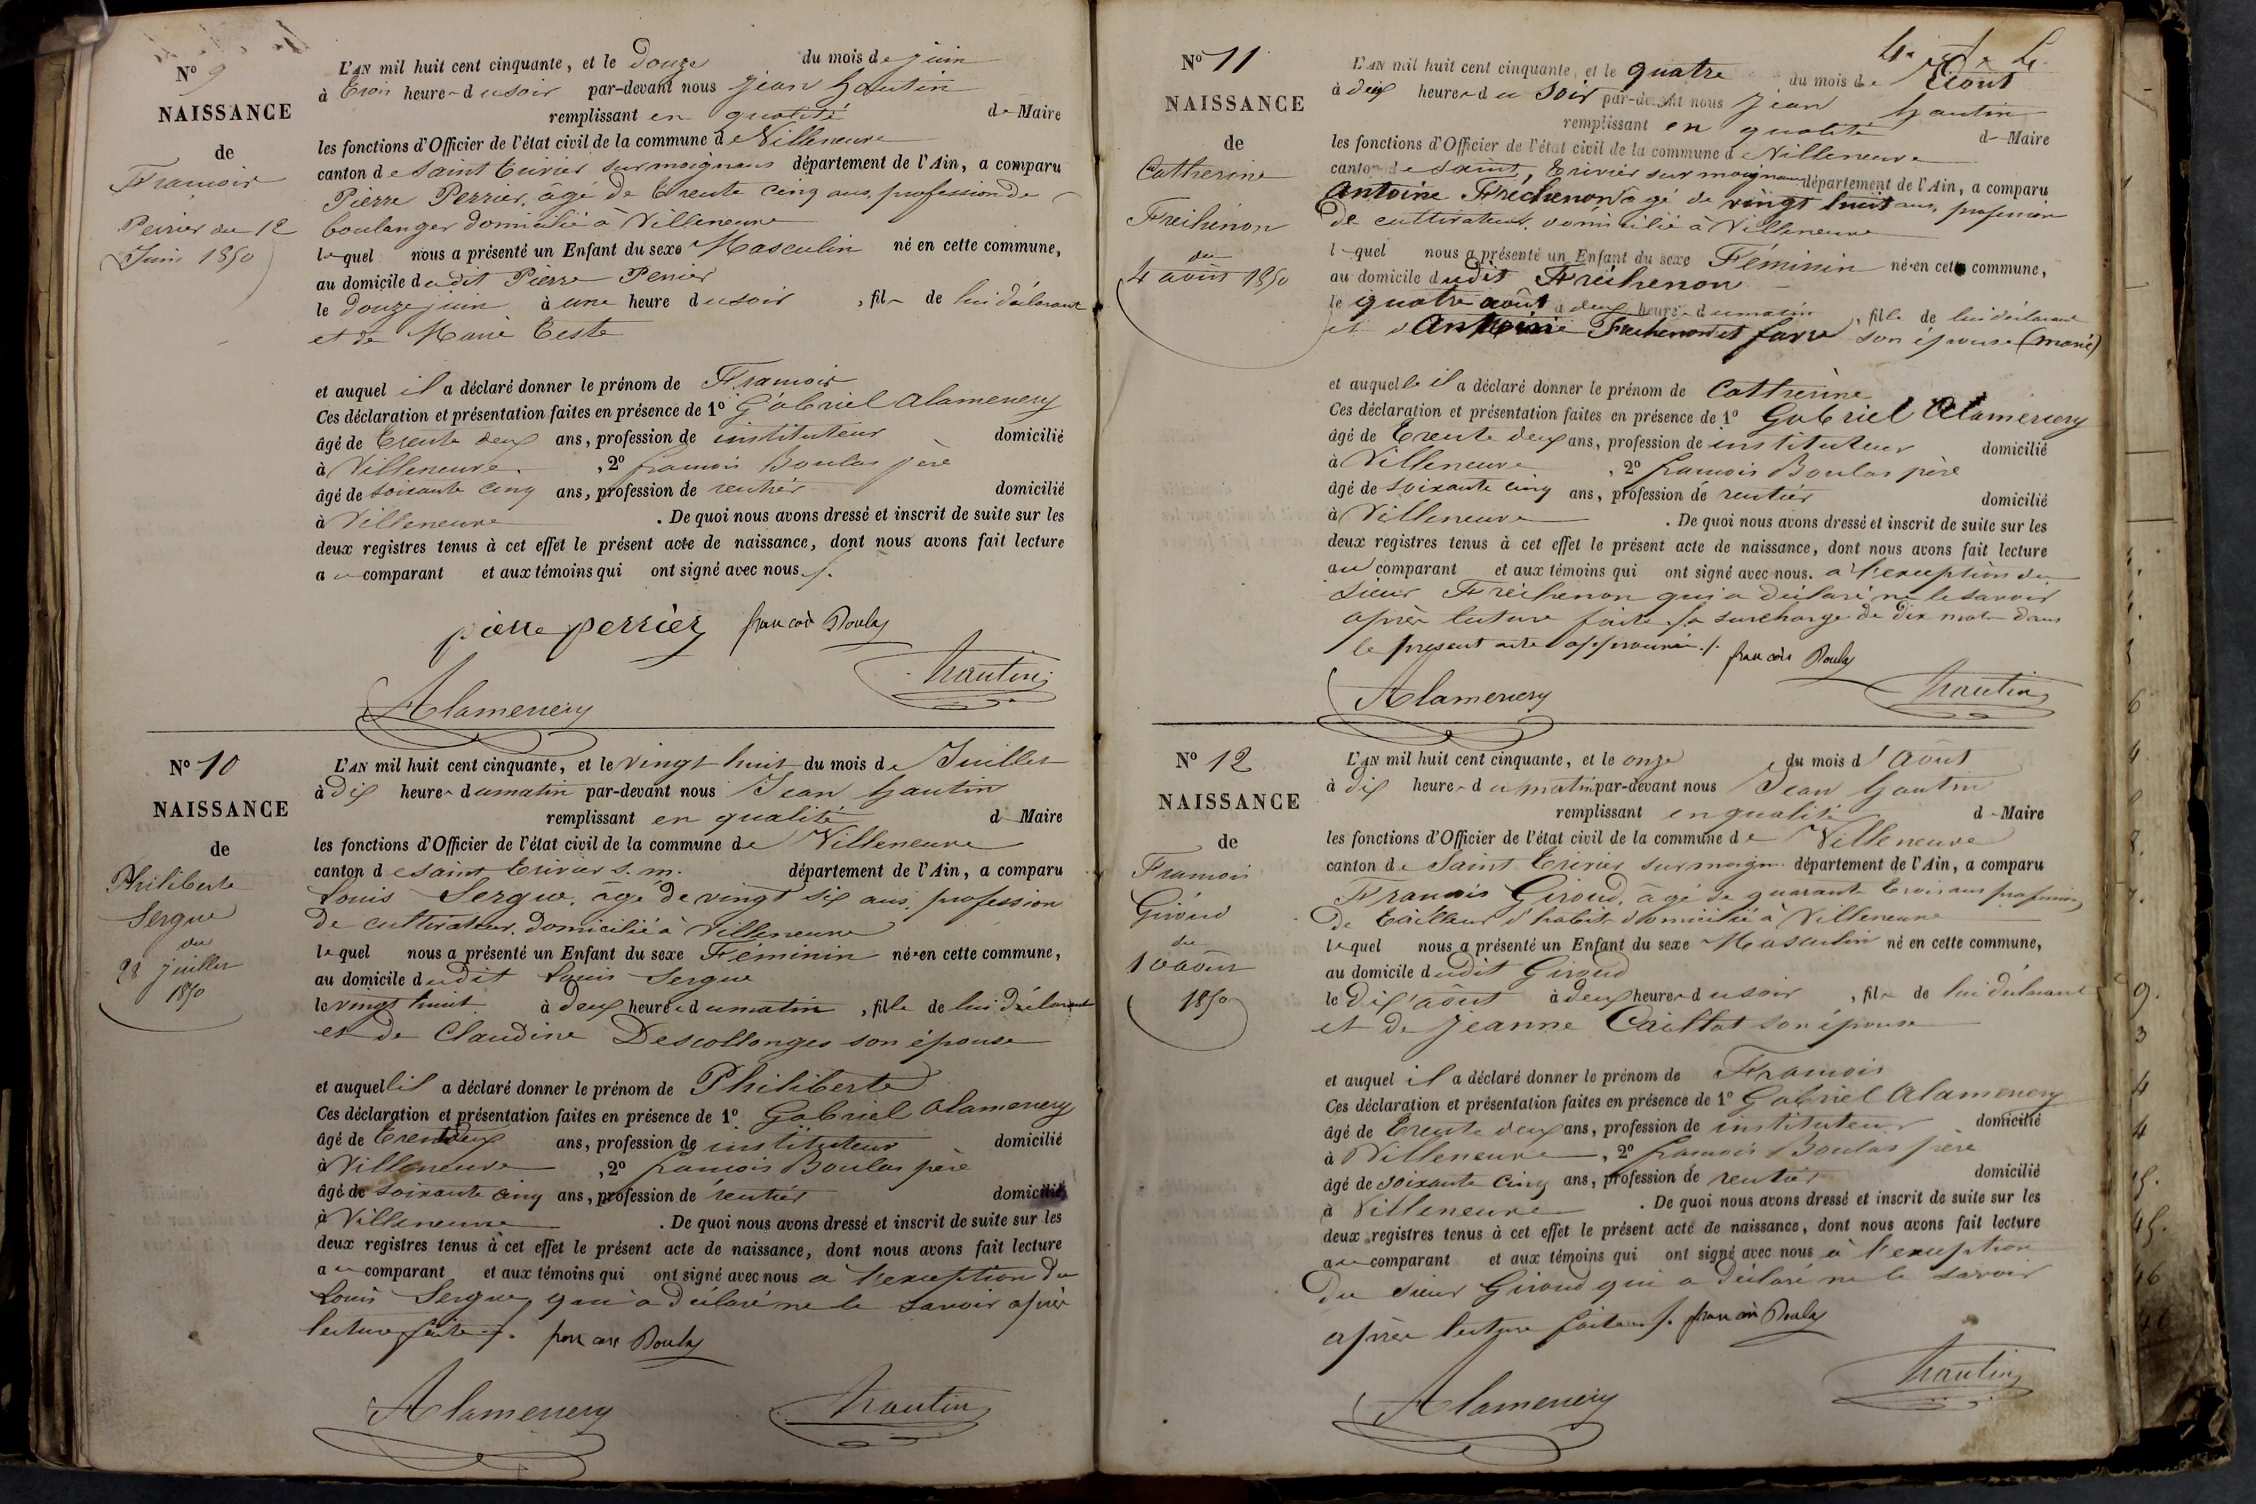 N° 9
NAISSANCE
de
François
Perrier du 12
Juin 1850
L'AN mil huit cent cinquante, et le douze du mois de juin
à trois heures du soir par-devant nous Jean Gautin
remplissant en qualité de Maire
les fonctions d'Officier de l'état civil de la commune de Villeneuve
canton de Saint Trivier sur moignans département de l'Ain, a comparu
Pierre Perrier, âgé de trente cinq ans, profession de
boulanger domicilié à Villeneuve
lequel nous a présenté un Enfant du sexe Masculin né en cette commune,
au domicile dudit Pierre Perrier
le douze juin à une heure du soir, fils de lui déclarant
et de Marie Teste
et auquel il a déclaré donner le prénom de François
Ces déclaration et présentation faites en présence de 1° Gabriel Alamercery
âgé de trente deux ans, profession de instituteur domicilié
à Villeneuve, 2° françois Boulas père
âgé de soixante cinq ans, profession de rentier domicilié
à Villeneuve. De quoi nous avons dressé et inscrit de suite sur les
deux registres tenus à cet effet le présent acte de naissance, dont nous avons fait lecture
au comparant et aux témoins qui ont signé avec nous.
pierre perrier françois Boulas
Alamercery
N° 10
NAISSANCE
de
Philiberte
Sergue
du
28 juillet
1850
L'AN mil huit cent cinquante, et le vingt huit du mois de Juillet
à dix heures du matin par-devant nous Jean Gautin
remplissant en qualité de Maire
les fonctions d'Officier de l'état civil de la commune de Villeneuve
canton de Saint Trivier s. m. département de l'Ain, a comparu
Louis Sergue, âgé de vingt six ans, profession
de cultivateur, domicilié à Villeneuve
lequel nous a présenté un Enfant du sexe Féminin née en cette commune,
au domicile dudit Louis Sergue
le vingt huit à deux heures du matin, fille de lui déclarant
et de Claudine Descollonges son épouse
et auquelle il a déclaré donner le prénom de Philiberte
Ces déclaration et présentation faites en présence de 1° Gabriel Alamercery
âgé de trente deux ans, profession de instituteur domicilié
à Villeneuve, 2° françois Boulas père
âgé de soixante cinq ans, profession de rentier domicilié
à Villeneuve. De quoi nous avons dressé et inscrit de suite sur les
deux registres tenus à cet effet le présent acte de naissance, dont nous avons fait lecture
au comparant et aux témoins qui ont signé avec nous à l'exception du
Louis Sergue, qui a déclaré ne le savoir après
lecture faite. françois Boulas
Alamercery
N° 11
NAISSANCE
de
Catherine
Fréchenon
du
4 août 1850
L'AN mil huit cent cinquante, et le quatre du mois de Août
à deux heures du soir par-devant nous Jean Gautin
remplissant en qualité de Maire
les fonctions d'Officier de l'état civil de la commune de Villeneuve
canton de saint Trivier sur moignans département de l'Ain, a comparu
Antoine Fréchenon âgé de vingt huit ans, profession
de cultivateur, domicilié à Villeneuve
lequel nous a présenté un Enfant du sexe Féminin née en cette commune,
au domicile dudit Fréchenon
le quatre août à deux heures du matin, fille de lui déclarant
et d'Antoine Frechenon et farre son épouse (marie)
et auquelle il a déclaré donner le prénom de Catherine
Ces déclaration et présentation faites en présence de 1° Gabriel Alamercery
âgé de trente deux ans, profession de instituteur domicilié
à Villeneuve, 2° françois Boulas père
âgé de soixante cinq ans, profession de rentier domicilié
à Villeneuve. De quoi nous avons dressé et inscrit de suite sur les
deux registres tenus à cet effet le présent acte de naissance, dont nous avons fait lecture
au comparant et aux témoins qui ont signé avec nous. à l'exception du
sieur Fréchenon qui a déclaré ne le savoir
après lecture faite. La surcharge de dix mots dans
le present acte approuvée. françois Boulas
Alamercery
N° 12
NAISSANCE
de
François
Giroud
du
10 août
1850
L'AN mil huit cent cinquante, et le onze du mois d'Août
à dix heures du matin par-devant nous Jean Gautin
remplissant en qualité de Maire
les fonctions d'Officier de l'état civil de la commune de Villeneuve
canton de Saint Trivier sur moign. département de l'Ain, a comparu
François Giroud, âgé de quarante trois ans profession
de tailleur d'habits domicilié à Villeneuve
lequel nous a présenté un Enfant du sexe Masculin né en cette commune,
au domicile dudit Giroud
le dix août à deux heures du soir, fils de lui déclarant
et de Jeanne Caillat son épouse
et auquel il a déclaré donner le prénom de François
Ces déclaration et présentation faites en présence de 1° Gabriel Alamercery
âgé de trente deux ans, profession de instituteur domicilié
à Villeneuve, 2° françois Boulas père
âgé de soixante cinq ans, profession de rentier domicilié
à Villeneuve. De quoi nous avons dressé et inscrit de suite sur les
deux registres tenus à cet effet le présent acte de naissance, dont nous avons fait lecture
au comparant et aux témoins qui ont signé avec nous à l'exception
du sieur Giroud qui a déclaré ne le savoir
après lecture faite. françois Boulas
Alamercery